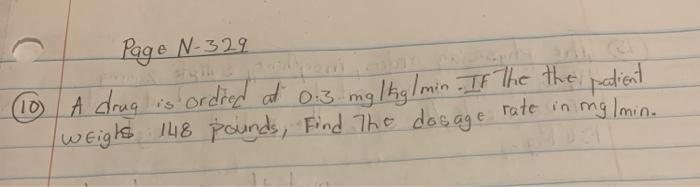 Page N-329
(10) A drug is ordred at 0.3 mg/kg/min. If The the patient
weighs 148 pounds, Find The dosage rate in mg/min.